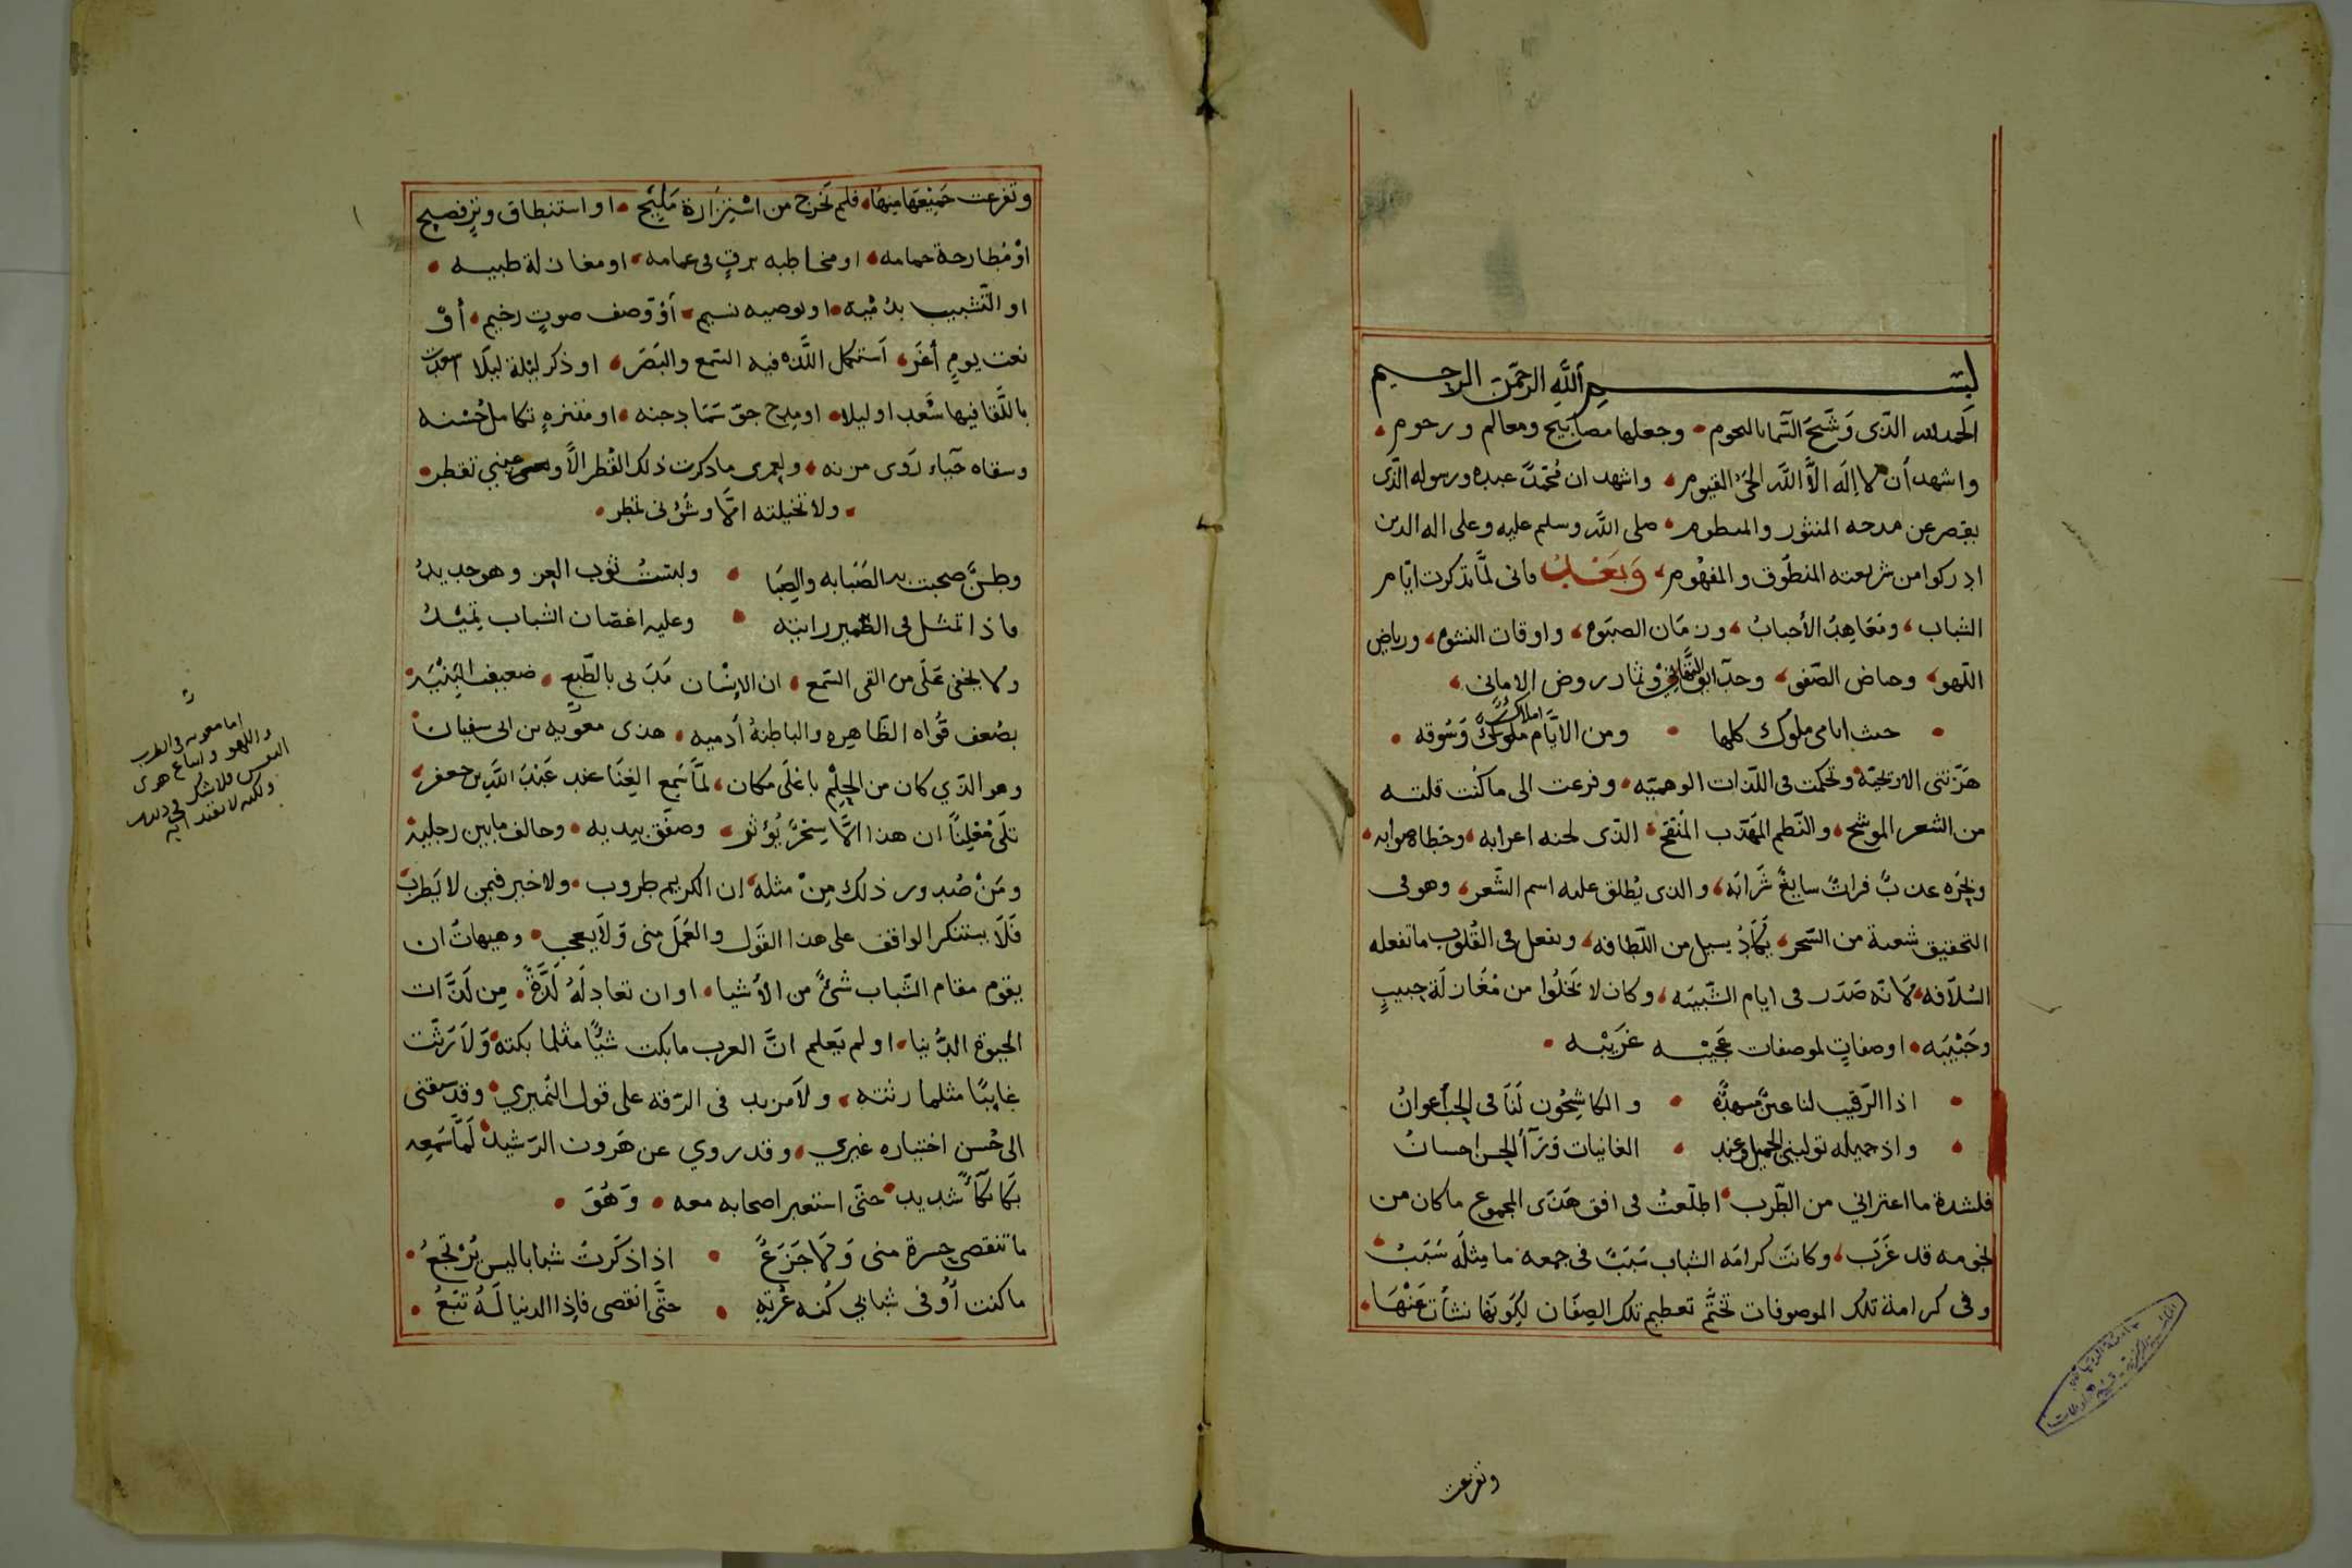 بسم الله الرحمن الرحيم
الحمد لله الذى وشح السما بالنجوم وجعلها مصابيح ومعالم ورجوم
واشهد أن لا إله الا الله الحى القيوم واشهد ان محمدا عبده ورسوله الذى
يقصر عن مدحه المنثور والمنظوم صلى الله وسلم عليه وعلى اله الذين
ادركوا من شريعته المنطوق والمفهوم وبعد فانى لما تذكرت ايام
الشباب ومعاهد الأحباب وزمان الصبوه واوقات النشوه ورياض
اللهو وحياض الصفو وثمار روض الامانى
حيث ايامى ملوك كلها ومن الايام املاك وسوقه
هزتنى الاريحيه وتحكمت فى اللذات الوهميه وفزعت الى ما كنت قلته
من الشعر الموشح والنظم المهذب المنقح الذى لحنه اعرابه وخطاه صوابه
وبحره عذب فرات سايغ شرابه والذى يطلق عليه اسم الشعر وهو فى
التحقيق شعبة من السحر يكاد يسيل من اللطافه ويفعل فى القلوب ما تفعله
السلافه لانه صدر فى ايام الشبيبه وكان لا يخلوا من مغازلة حبيب
وحبيبه اوصفات لموصفات عجيبه غريبه
اذا الرقيب لنا عين مسهدة والكاشحون لنا فى الحب أعوان
واذ جميله توليني الجميل وعند الغانيات وراء الحسن احسان
فلشدة ما اعتراني من الطرب اطلعت فى افق هذى المجموع ما كان من
نجومه قد غرب وكانت كرامه الشباب سببا فى جمعه ما مثله سبب
وفى كرامة تلك الموصوفات تحتم تعظيم تلك الصفات لكونها نشأت عنها
وتفرعت
وتفرعت جميعها منها فلم تخرج من استزارة مليح او استنطاق وتر فصيح
او مطارحة حمامه او مخاطبه برق فى غمامه او مغازلة ظبيه
او التشبيب بدميه او توصيه نسيم أو وصف صوت رخيم أو
نعت يوم أغر استكمل اللذه فيه السمع والبصر او ذكر ليلة ليلا سمحت
باللقا فيها سعد او ليلا او مدح جو سما دجنه او منتزه تكامل حسنه
وسقاه حياء روى مزنه ولعمرى ما ذكرت ذلك القطر الا وعيني تقطر
ولا تخيلته الا وشؤنى تمطر
وطن صحبت به الصبابه والصبا ولبست ثوب العز وهو جديد
فاذا تمثل فى الضمير رايته وعليه اغصان الشباب تميد
ولا يخفى على من القى السمع ان الانسان مدنى بالطبع ضعيف البنيه
بضعف قواه الظاهره والباطنه أدميه هذى معويه بن ابى سفيان
وهو الذي كان من الحلم باعلى مكان لما سمع الغنا عند عبد الله بن جعفر
تلى معلنا ان هذا الا سحر يؤثر وصفق بيديه وخالف ما بين رجليه
ومن صدور ذلك من مثله ان الكريم طروب ولا خير فيمن لا يطرب
فلا يستنكر الواقف على هذا القول والعمل منى ولا يعجب وهيهات ان
يقوم مقام الشباب شئ من الأشيا او ان تعادله لذة من لذات
الحيوة الدنيا او لم يعلم ان العرب ما بكت شيا مثلما بكته ولا رثت
غايبا مثلما رثته ولا مزيد فى الرقه على قول النميري وقد سبقنى
الى حسن اختياره غيري وقد روي عن هرون الرشيد لما سمعه
بكا بكاء شديد حتى استعبر اصحابه معه وهو
ما تنقضى حسرة منى ولا جزع اذا ذكرت شبابا ليس يرتجع
ما كنت أوفى شبابي كنه غرته حتى انقضى فاذا الدنيا له تبع
اما معويه فى الطرب
واللهو واتباع هوى
النفس فلا شك فى ذلك